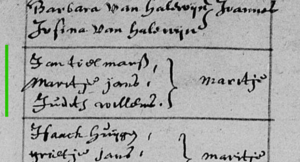 Barbara van Halewijn Joannes
Josina van Halewijn
Jan tielmans,
Maritje jans, maritje
Judith willems.
Isaack Huijgen,
grietje jans, maritje